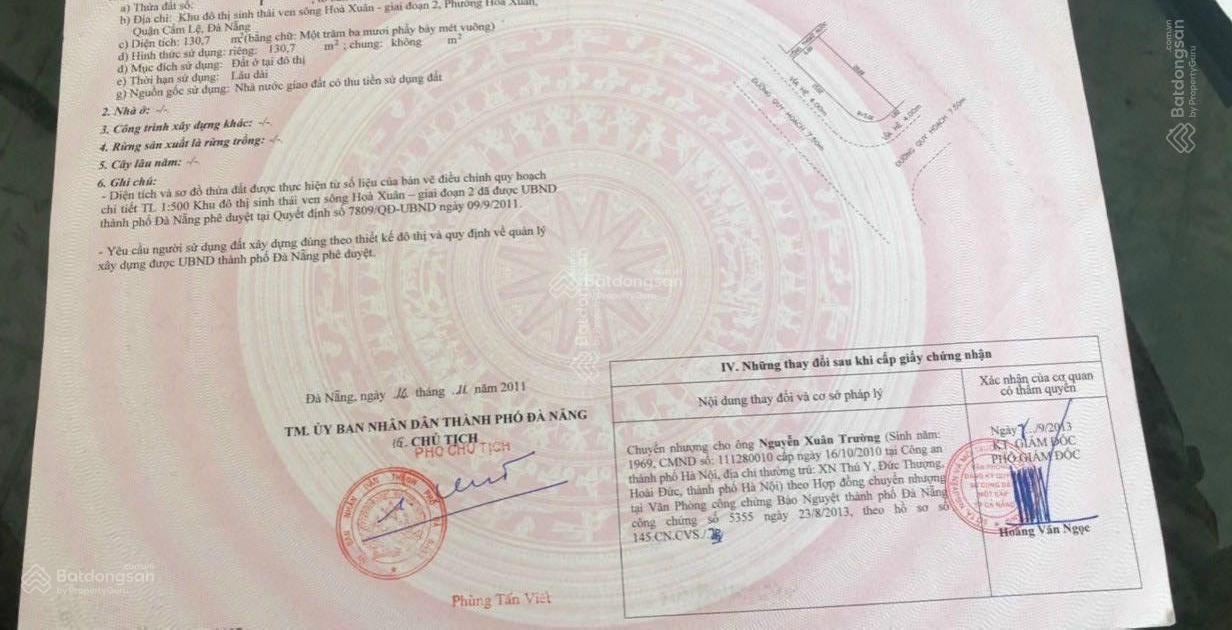 a) Thửa đất số:
b) Địa chỉ: Khu đô thị sinh thái ven sông Hoà Xuân - giai đoạn 2, Phường Hoà Xuân,
Quận Cẩm Lệ, Đà Nẵng
c) Diện tích: 130,7 m² (bằng chữ: Một trăm ba mươi phẩy bảy mét vuông)
d) Hình thức sử dụng: riêng: 130,7 m² ; chung: không m²
đ) Mục đích sử dụng: Đất ở tại đô thị
e) Thời hạn sử dụng: Lâu dài
g) Nguồn gốc sử dụng: Nhà nước giao đất có thu tiền sử dụng đất
2. Nhà ở: -/-
3. Công trình xây dựng khác: -/-
4. Rừng sản xuất là rừng trồng: -/-
5. Cây lâu năm: -/-
6. Ghi chú:
- Diện tích và sơ đồ thửa đất được thực hiện từ số liệu của bản vẽ điều chỉnh quy hoạch
chi tiết TL 1:500 Khu đô thị sinh thái ven sông Hoà Xuân – giai đoạn 2 đã được UBND
thành phố Đà Nẵng phê duyệt tại Quyết định số 7809/QĐ-UBND ngày 09/9/2011.
- Yêu cầu người sử dụng đất xây dựng đúng theo thiết kế đô thị và quy định về quản lý
xây dựng được UBND thành phố Đà Nẵng phê duyệt.
VỈA HÈ 4.00m
ĐƯỜNG QUY HOẠCH 7.50m
VỈA HÈ 4.00m
ĐƯỜNG QUY HOẠCH 7.50m
Đà Nẵng, ngày 16 tháng 11 năm 2011
TM. ỦY BAN NHÂN DÂN THÀNH PHỐ ĐÀ NẴNG
CHỦ TỊCH
PHÓ CHỦ TỊCH
Phùng Tấn Viết
IV. Những thay đổi sau khi cấp giấy chứng nhận
Nội dung thay đổi và cơ sở pháp lý
Xác nhận của cơ quan
có thẩm quyền
Chuyển nhượng cho ông Nguyễn Xuân Trường (Sinh năm:
1969, CMND số: 111280010 cấp ngày 16/10/2010 tại Công an
thành phố Hà Nội, địa chỉ thường trú: XN Thú Y, Đức Thượng,
Hoài Đức, thành phố Hà Nội) theo Hợp đồng chuyển nhượng
tại Văn Phòng công chứng Bảo Nguyệt thành phố Đà Nẵng
công chứng số 5355 ngày 23/8/2013, theo hồ sơ số
145.CN.CVS./
Ngày /9/2013
KT. GIÁM ĐỐC
PHÓ GIÁM ĐỐC
Hoàng Văn Ngọc
Batdongsan.com.vn
by PropertyGuru
Batdongsan.com.vn
by PropertyGuru
Batdongsan.com.vn
by PropertyGuru